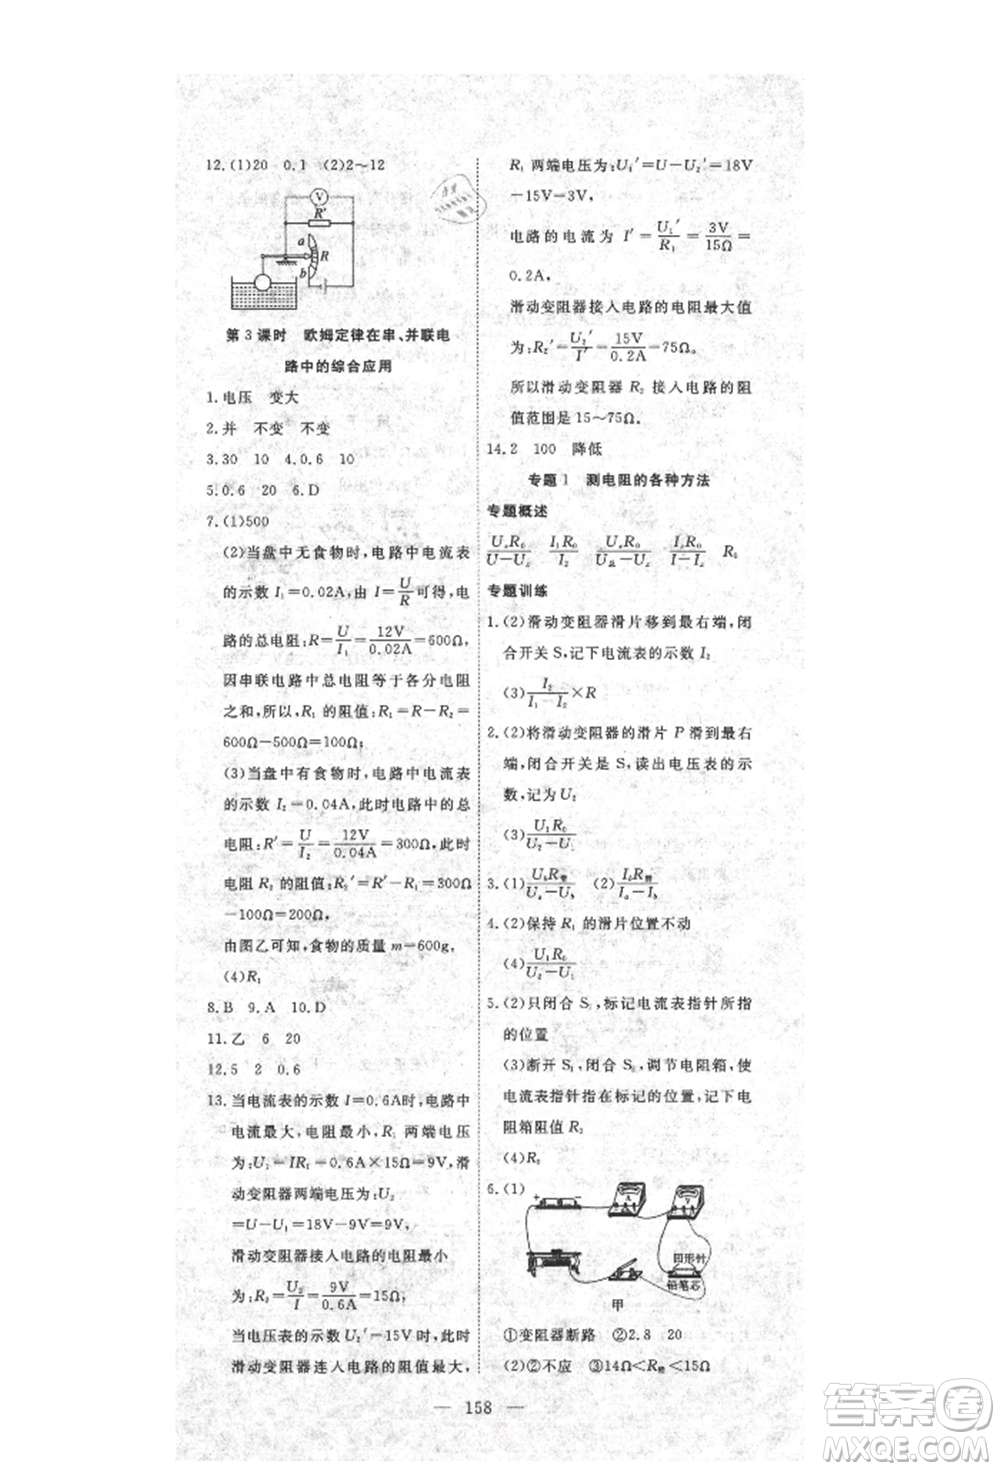 12.(1)20　0.1　(2)2～12
V
R'
a
R
b
第 3 课时　欧姆定律在串、并联电
路中的综合应用
1.电压　变大
2.并　不变　不变
3.30　10　4.0.6　10
5.0.6　20　6.D
7.(1)500
(2)当盘中无食物时,电路中电流表
的示数 I₁=0.02A,由 I=U/R 可得,电
路的总电阻:R=U/I₁=12V/0.02A=600Ω,
因串联电路中总电阻等于各分电阻
之和,所以,R₁ 的阻值:R₁=R-R₂=
600Ω-500Ω=100Ω;
(3)当盘中有食物时,电路中电流表
的示数 I₂=0.04A,此时电路中的总
电阻:R'=U/I₂=12V/0.04A=300Ω,此时
电阻 R₂ 的阻值:R₂'=R'-R₁=300Ω
-100Ω=200Ω;
由图乙可知,食物的质量 m=600g,
(4)R₁
8.B　9.A　10.D
11.乙　6　20
12.5　2　0.6
13.当电流表的示数 I=0.6A时,电路中
电流最大,电阻最小,R₁ 两端电压
为:U₁=IR₁=0.6A×15Ω=9V,滑
动变阻器两端电压为:U₂
=U-U₁=18V-9V=9V,
滑动变阻器接入电路的电阻最小
为:R₂=U₂/I=9V/0.6A=15Ω;
当电压表的示数 U₂'=15V 时,此时
滑动变阻器连入电路的阻值最大,
R₁ 两端电压为:U₁'=U-U₂'=18V
-15V=3V,
电路的电流为 I'=U₁'/R₁=3V/15Ω=
0.2A,
滑动变阻器接入电路的电阻最大值
为:R₂'=U₂'/I'=15V/0.2A=75Ω;
所以滑动变阻器 R₂ 接入电路的阻
值范围是 15～75Ω.
14.2　100　降低
专题 1　测电阻的各种方法
专题概述
专题训练
1.(2)滑动变阻器滑片移到最右端,闭
合开关 S,记下电流表的示数 I₂
(3)I₂/(I₁-I₂)×R
2.(2)将滑动变阻器的滑片 P 滑到最右
端,闭合开关是 S,读出电压表的示
数,记为 U₂
(3)U₁R₀/(U₂-U₁)
4.(2)保持 R₁ 的滑片位置不动
(4)U₁R₀/(U₂-U₁)
5.(2)只闭合 S₁,标记电流表指针所指
的位置
(3)断开 S₁,闭合 S₂,调节电阻箱,使
电流表指针指在标记的位置,记下电
阻箱阻值
6.(1)
+
-
圆形针
铅笔芯
甲
①变阻器断路　②2.8　20
(2)②不应　③14Ω<R<15Ω
158
答案圈
MXQE.COM